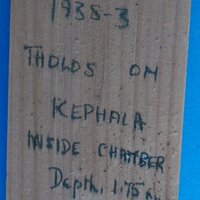 1938-3
THOLOS ON
KEPHALA
INSIDE CHAMBER
Depth, 1.75 m